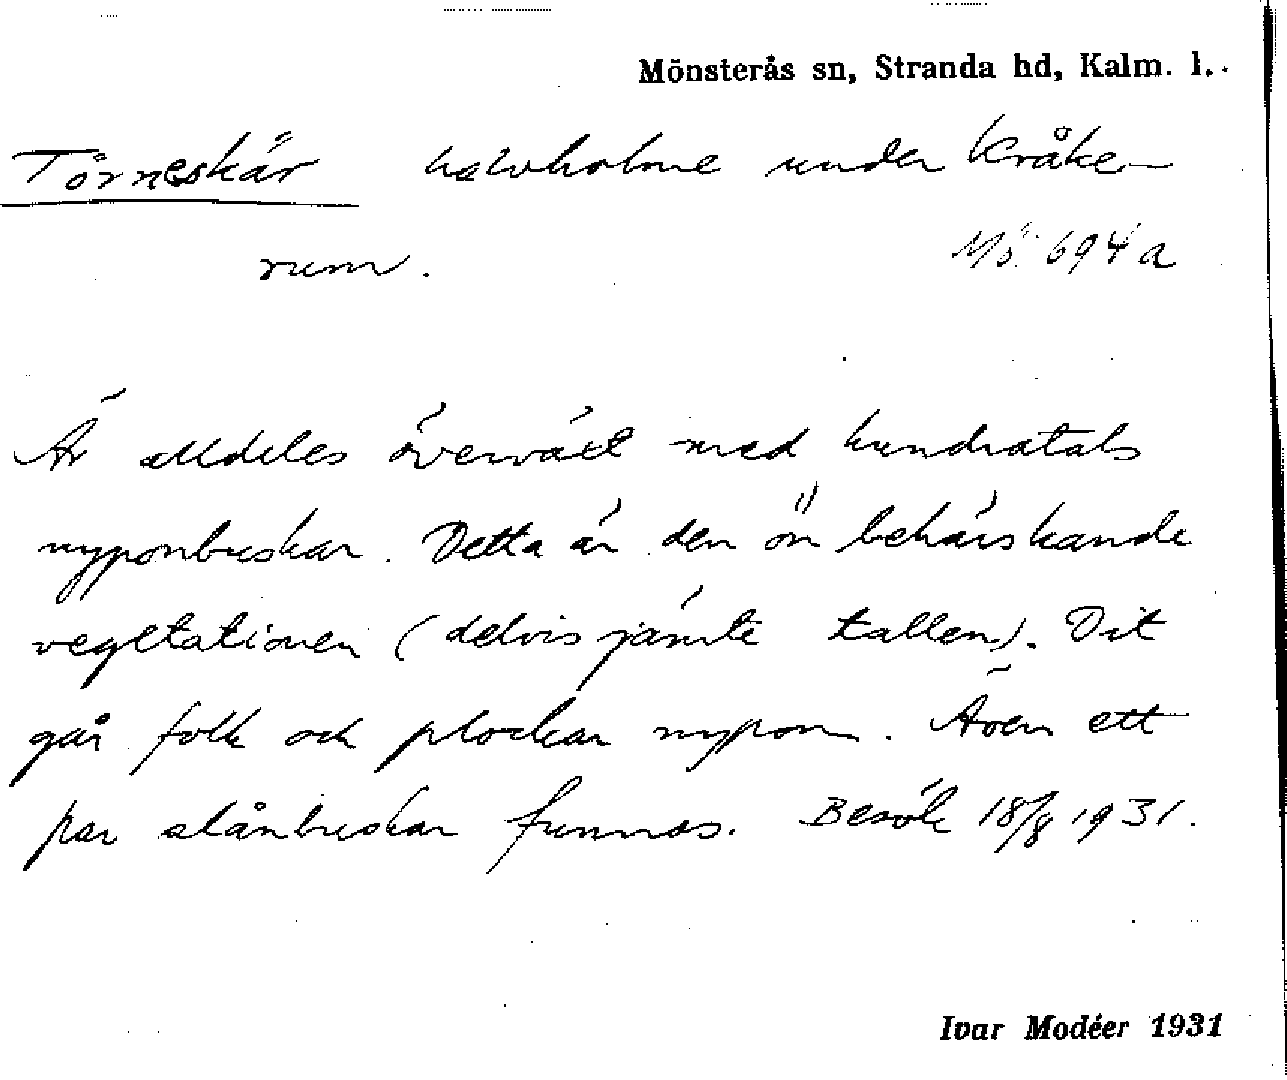 Mönsterås sn, Stranda hd, Kalm. l.
Törneskär halvholme under Kråke-
rum.
Mö. 694 a
Är alldeles överväxt med hundratals
nyponbuskar. Detta är den ön behärskande
vegetationen (delvis jämte tallen). Dit
går folk och plockar nypon. Även ett
par slånbuskar funnos. Besök 18/8 1931.
Ivar Modéer 1931